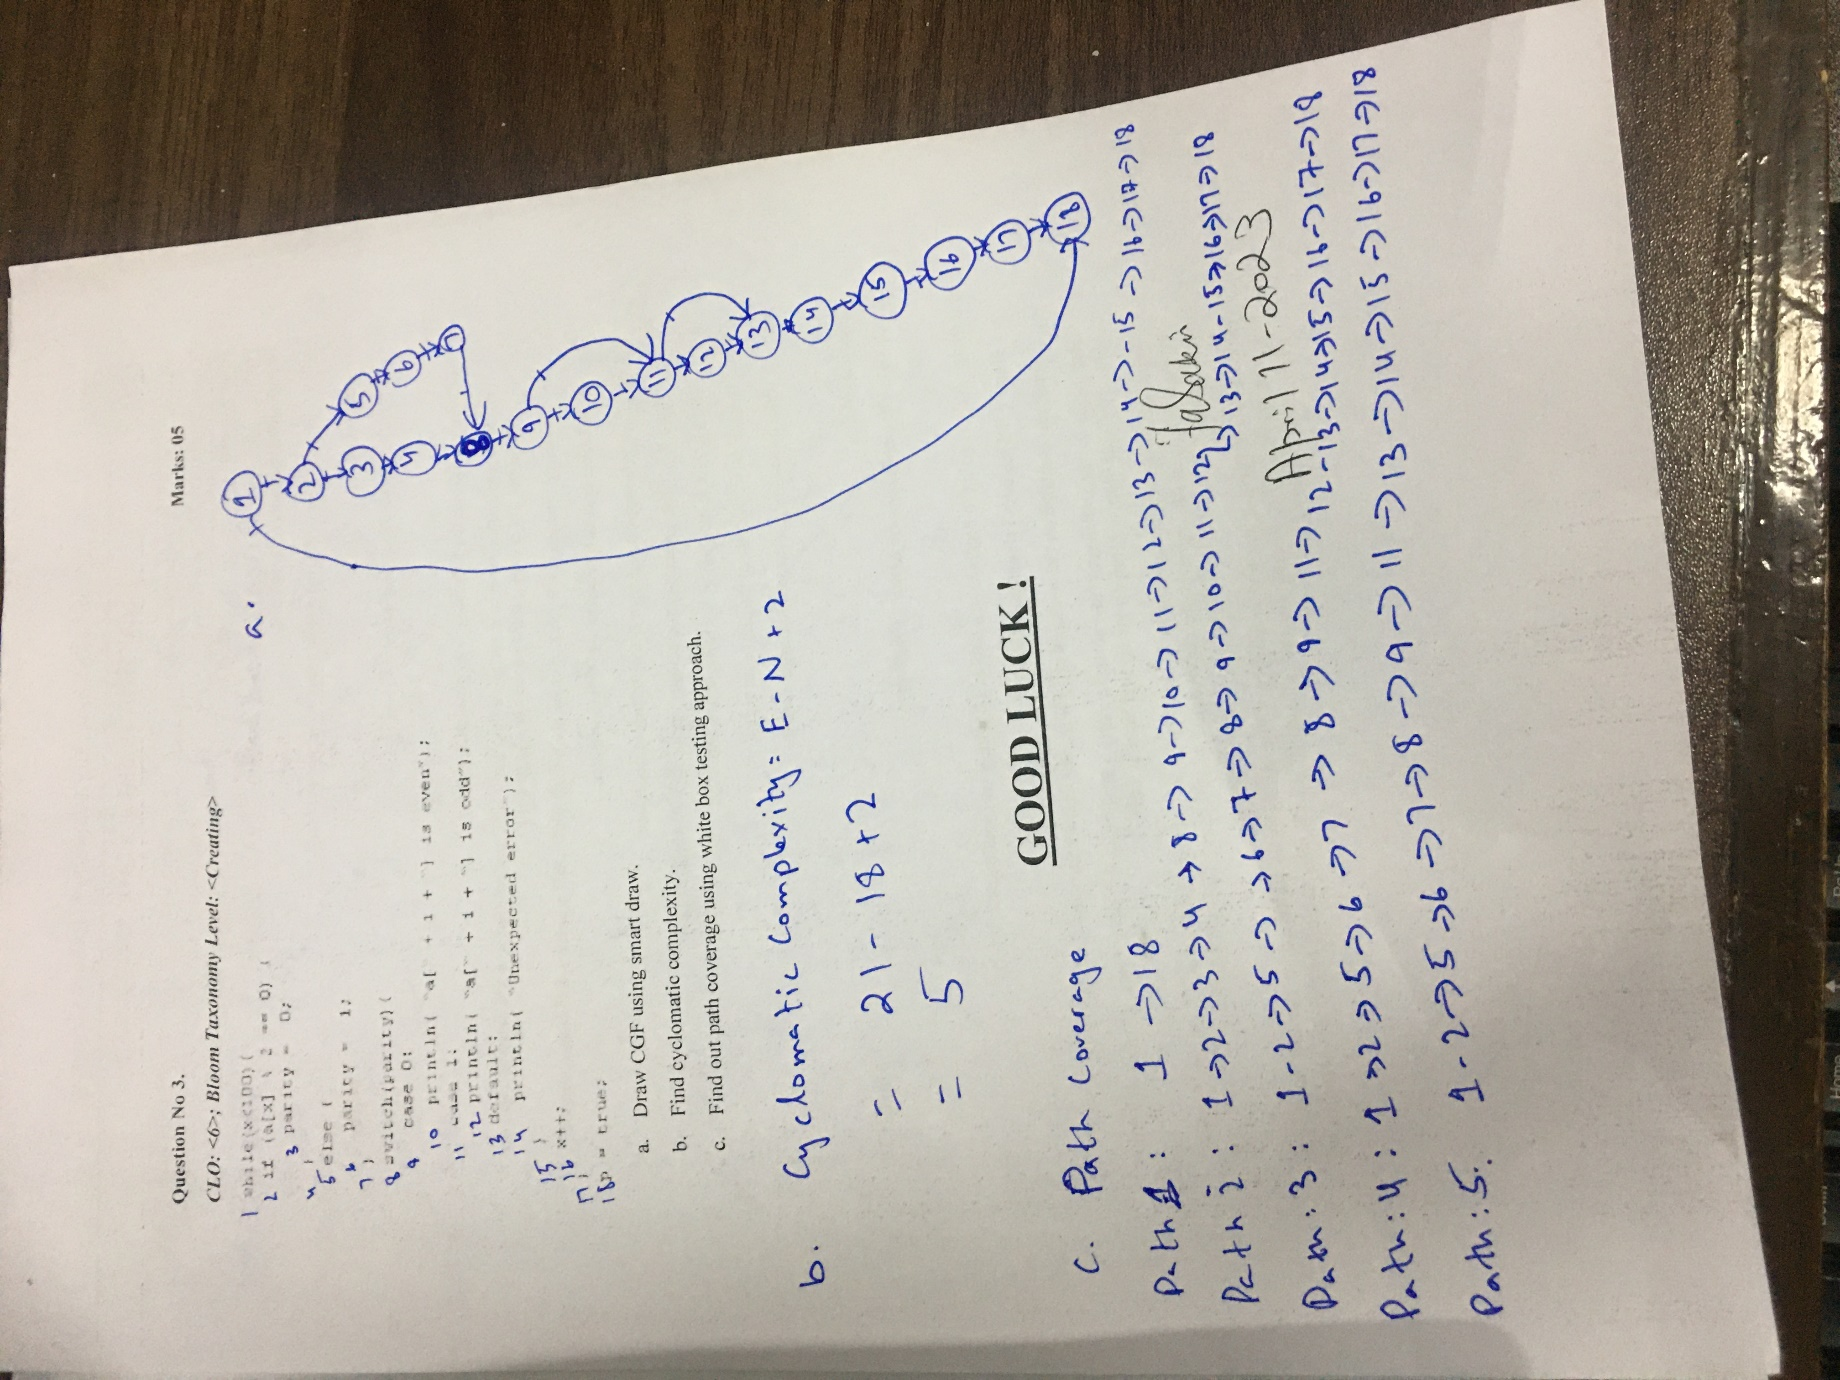 Question No 3.
Marks: 05
CLO: <6>; Bloom Taxonomy Level: <Creating>
1 while(x<100) {
2 if (a[x] % 2 == 0) {
3 parity = 0;
4 }
5 else {
6 parity = 1;
7 }
8 switch(parity) {
9 case 0:
10 println( "a[" + i + "] is even");
11 case 1:
12 println( "a[" + i + "] is odd");
13 default:
14 println( "Unexpected error");
15 }
16 x++;
17 }
18 p = true;
a.
1
2
3
4
5
6
7
8
9
10
11
12
13
14
15
16
17
18
a. Draw CGF using smart draw.
b. Find cyclomatic complexity.
c. Find out path coverage using white box testing approach.
b. Cyclomatic Complexity = E - N + 2
= 21 - 18 + 2
= 5
GOOD LUCK!
c. Path Coverage
Path 1: 1 → 18
Path 2: 1 → 2 → 3 → 4 → 8 → 9 → 10 → 11 → 12 → 13 → 14 → - 15 → 16 → 17 → 18
Path: 3: 1 - 2 → 5 → → 6 → 7 → 8 → 9 → 10 → 11 → 12 → 13 → 14 - 15 → 16 → 17 → 18
April 11 - 2023
Path: 4: 1 → 2 → 5 → 6 → 7 → 8 → 9 → 11 → 12 - 13 → 14 → 15 → 16 → 17 → 18
Path: 5: 1 - 2 → 5 → 6 → 7 → 8 → 9 → 11 → 13 → 14 → 15 → 16 → 17 → 18